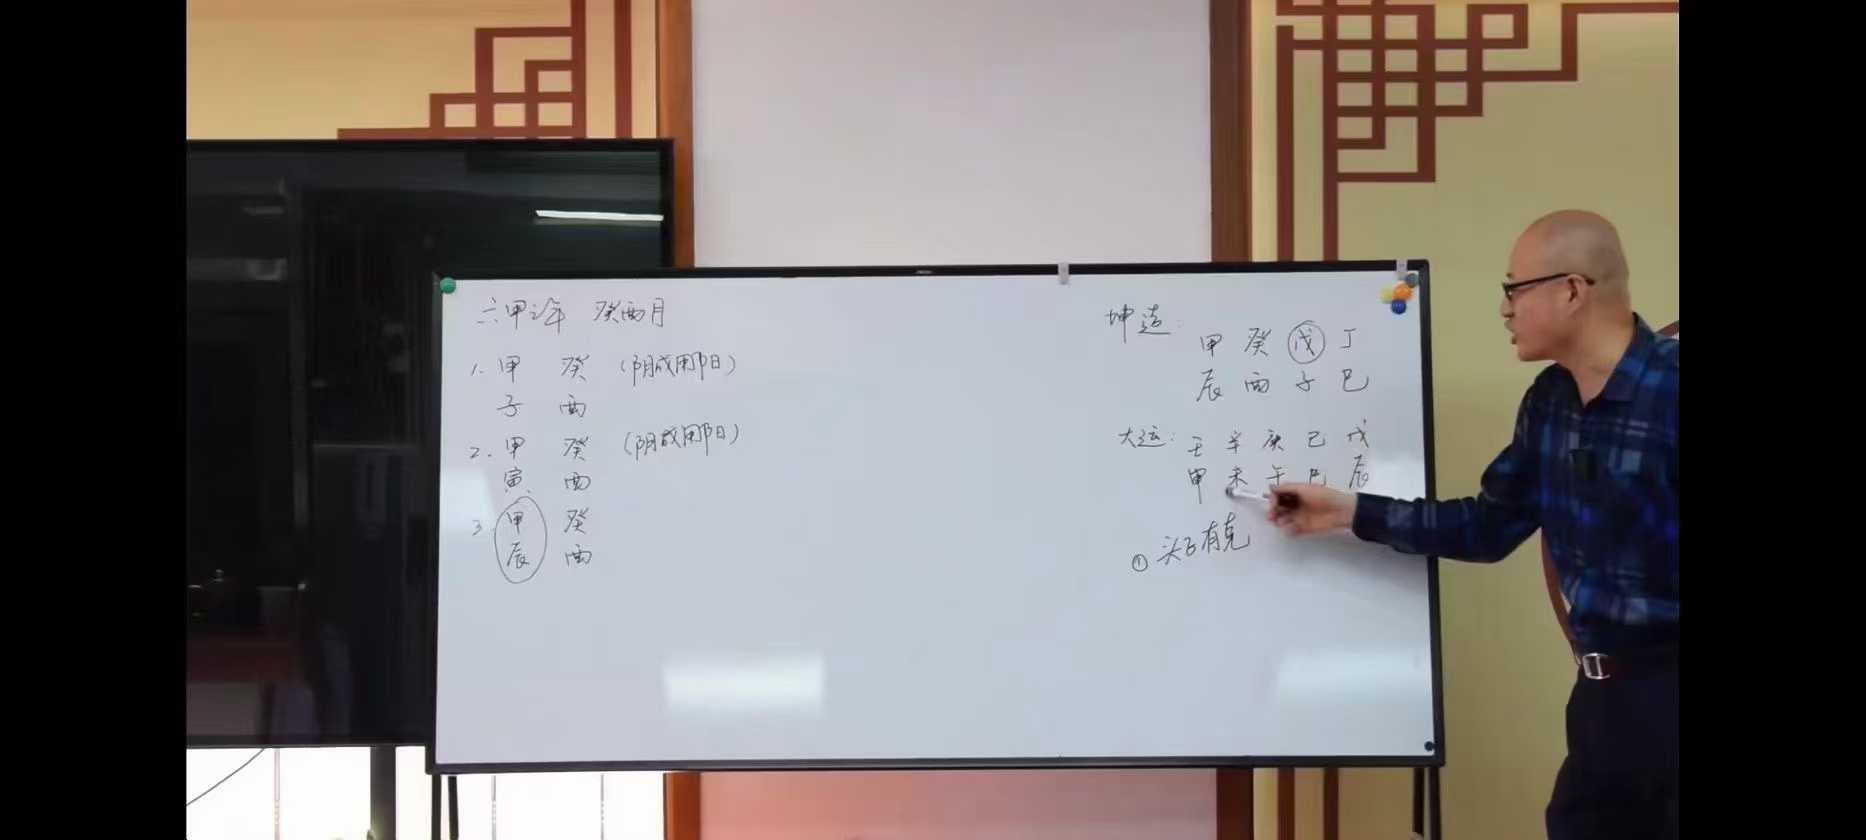 六甲之年 癸酉月
1. 甲 癸 (阴成用阳)
子 酉
2. 甲 癸 (阴成用阳)
寅 酉
3. 甲 癸
辰 酉
坤造:
甲 癸 戊 丁
辰 酉 子 巳
大运: 壬 辛 庚 己 戊
申 未 午 巳 辰
① 头上有克